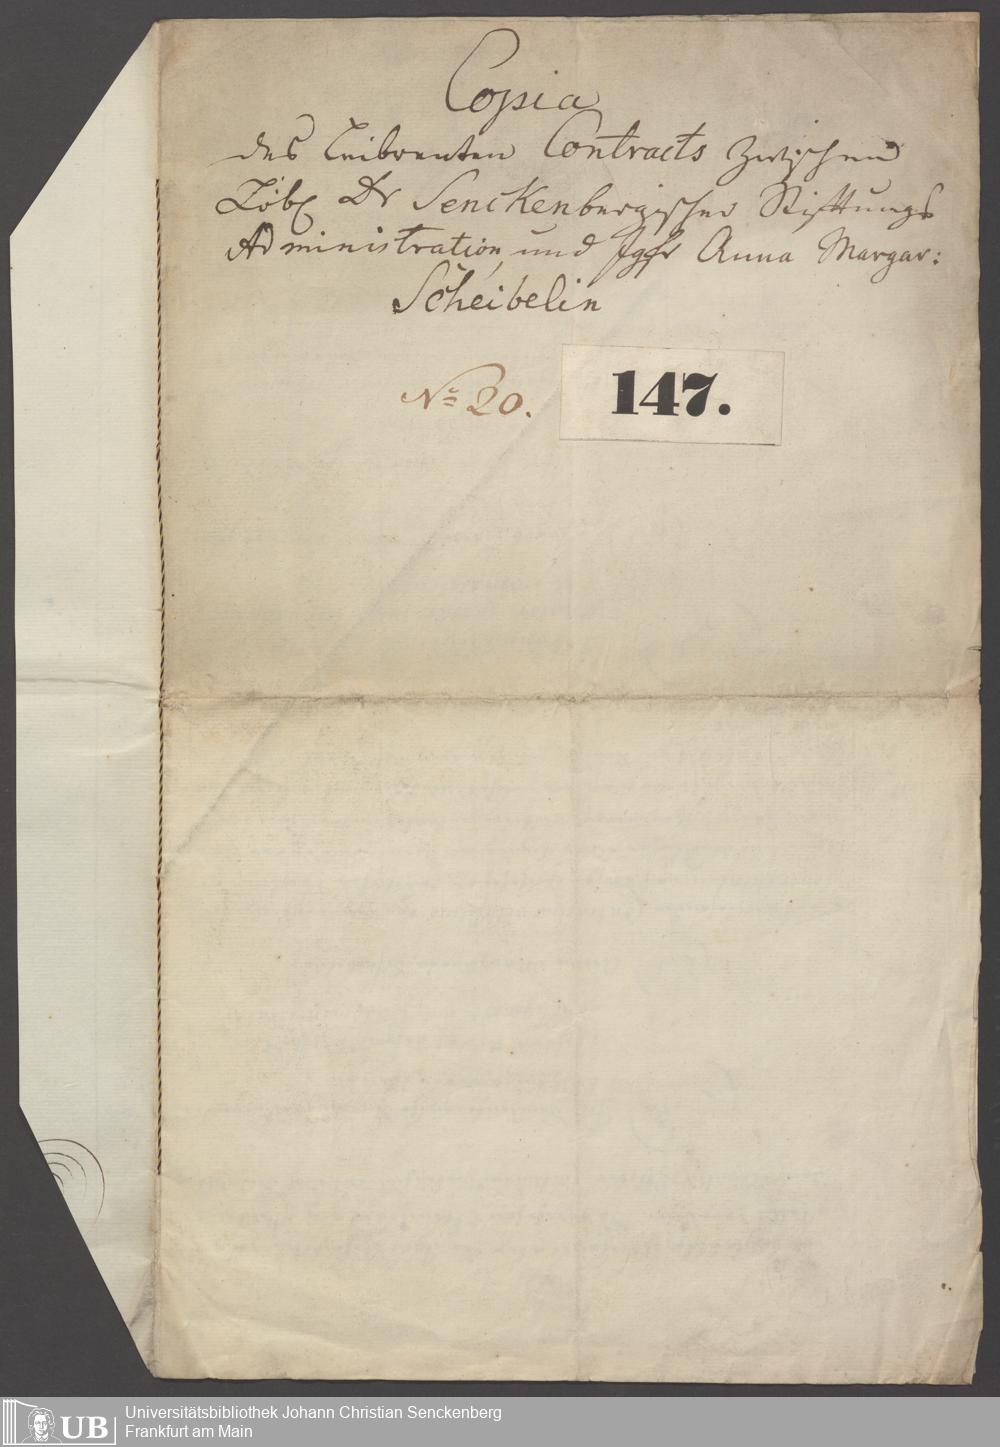 Copia
des Leibrenten Contracts zwischen
Löbl Dr Senckenbergischer Stiftungs
Administration, und Jgfr Anna Margar:
Scheibelin
No 20.
147.
UB
Universitätsbibliothek Johann Christian Senckenberg
Frankfurt am Main